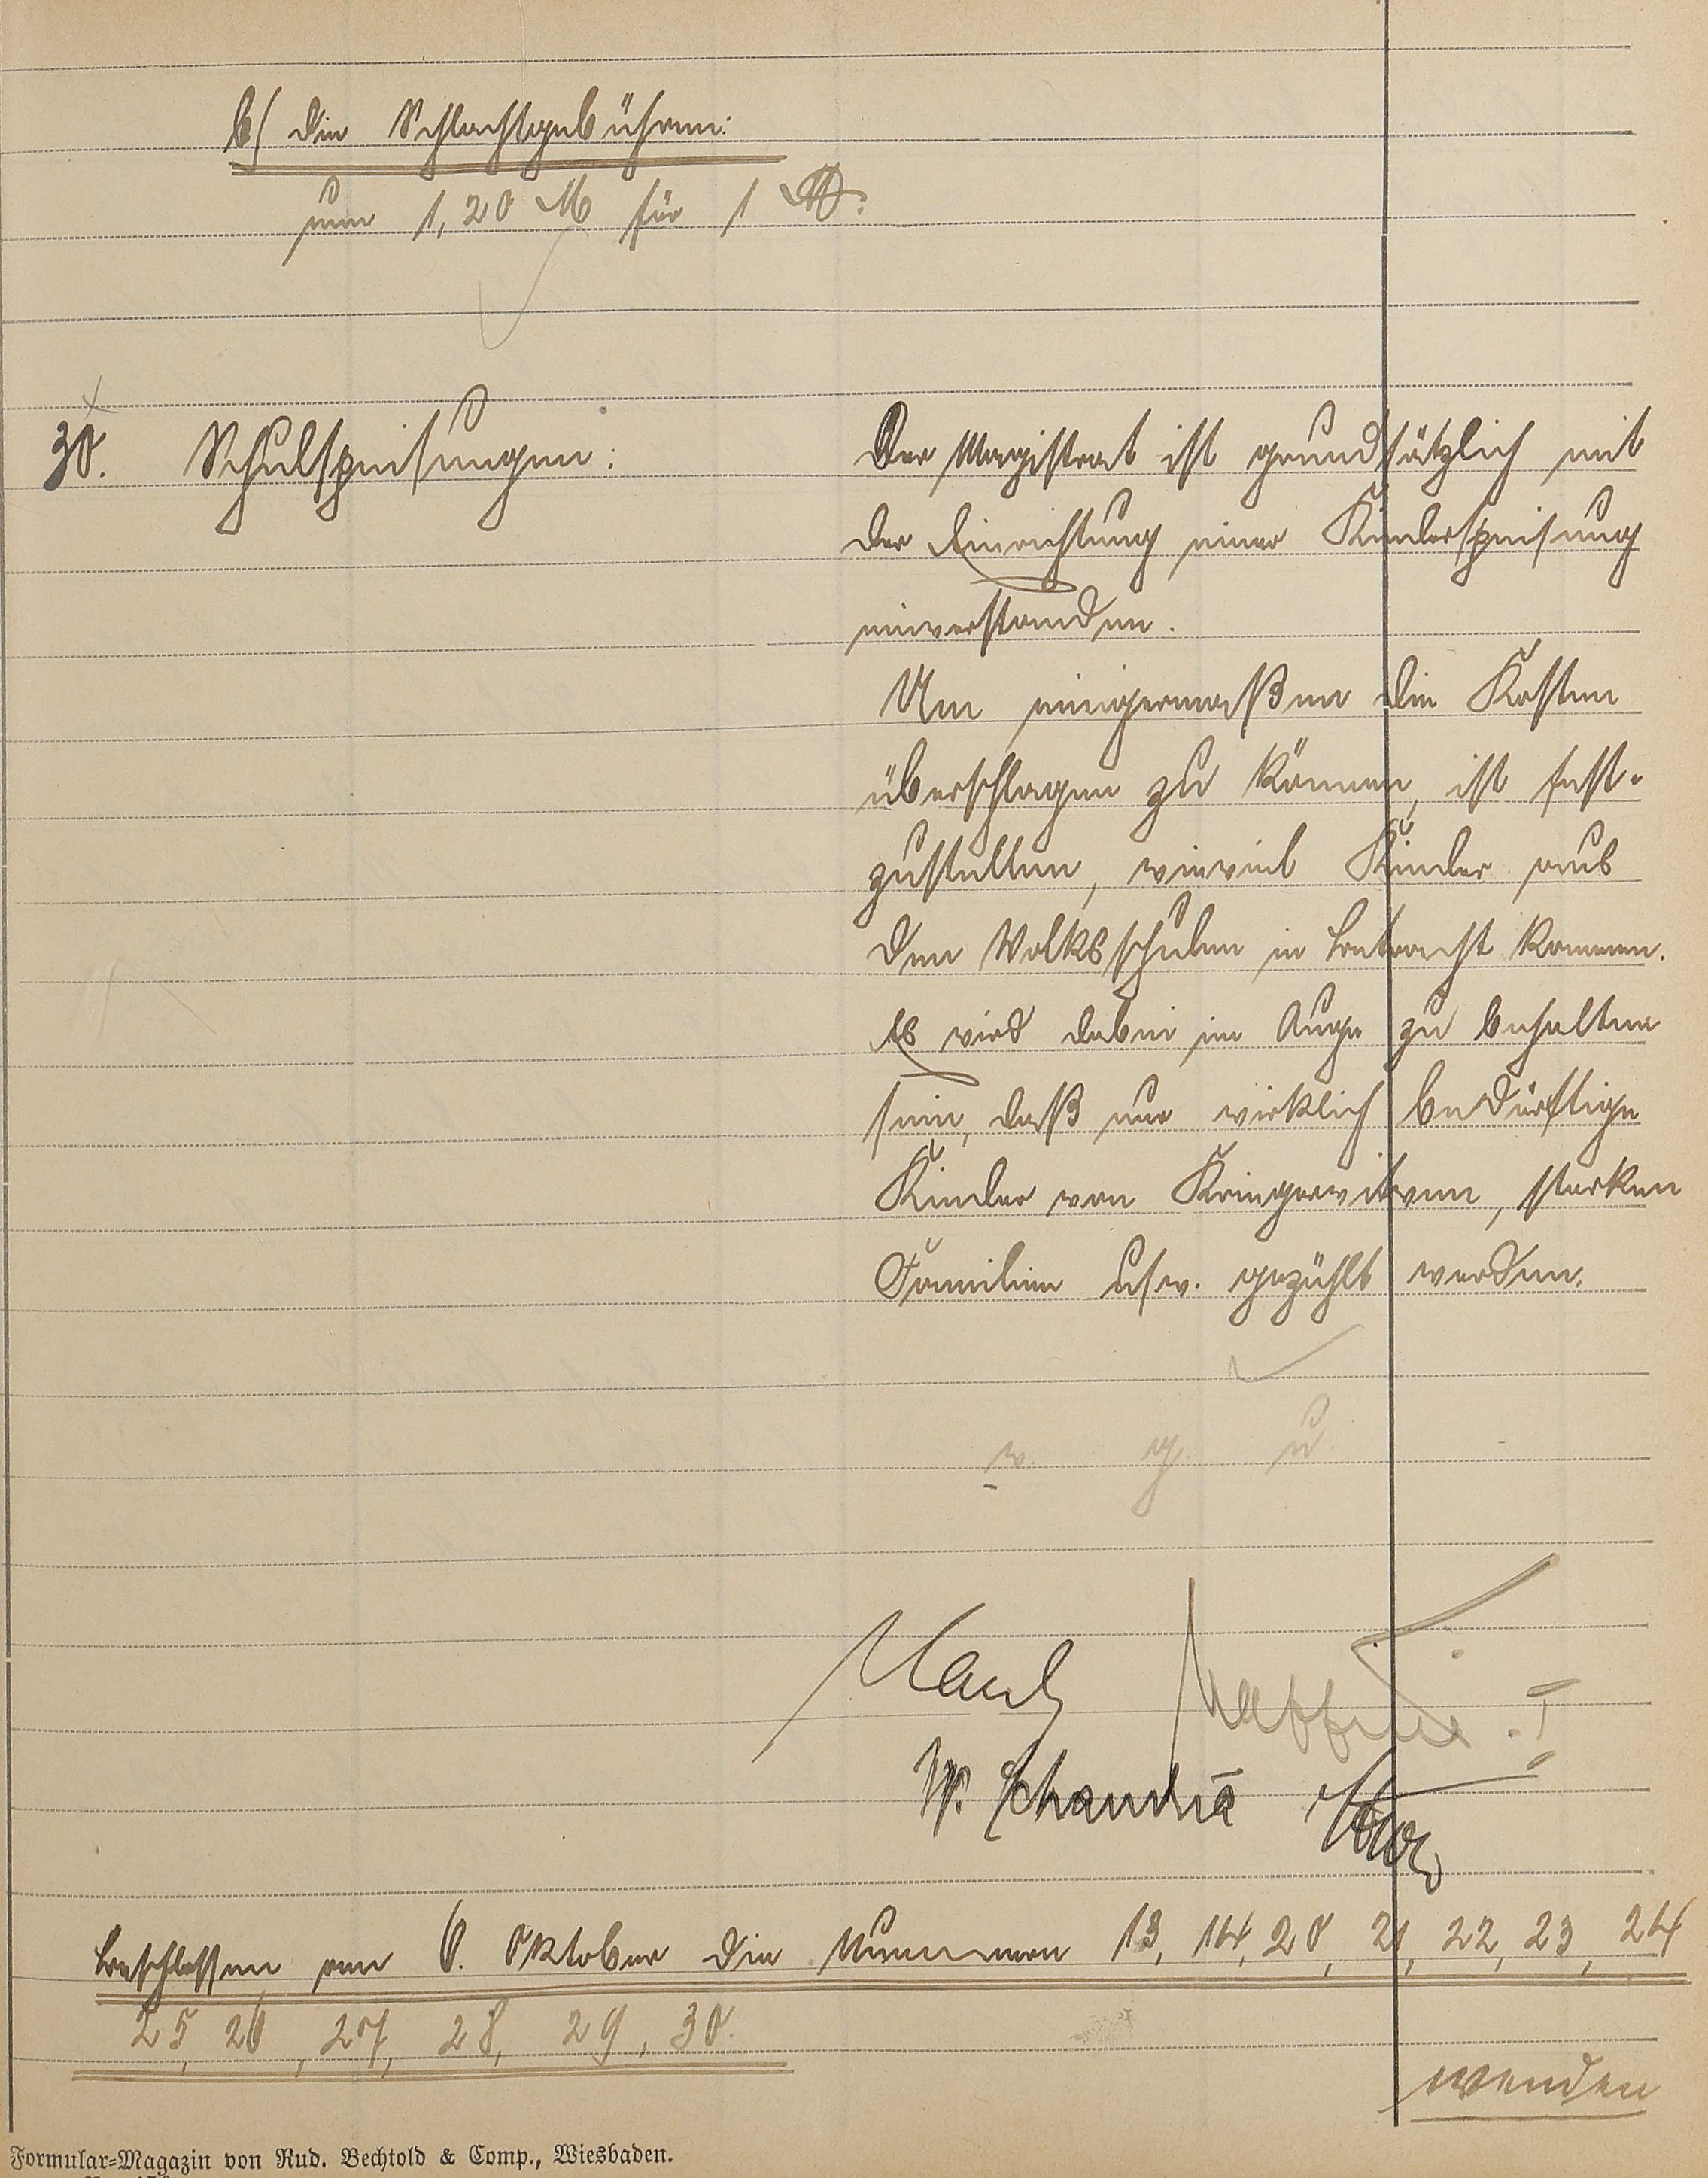 b/ die Schlachtgebühren:
um 1,20 M für 1 ℔.
30. Schulspeisungen:
Der Magistrat ist grundsätzlich mit
der Einrichtung einer Kinderspeisung
einverstanden.
Um einigermaßen die Kosten
überschlagen zu können, ist fest-
zustellen, wieviel Kinder aus
den Volksschulen in Betracht kommen.
Es wird dabei im Auge zu behalten
sein, daß nur wirklich bedürftige
Kinder von Kriegerwitwen, starken
Familien usw. gezählt werden.
v. g. u.
W.
Beschlossen am 6. Oktober die Nummern 13, 14, 20, 21, 22, 23, 24
25, 26, 27, 28, 29, 30.
wenden
Formular-Magazin von Rud. Bechtold & Comp., Wiesbaden.